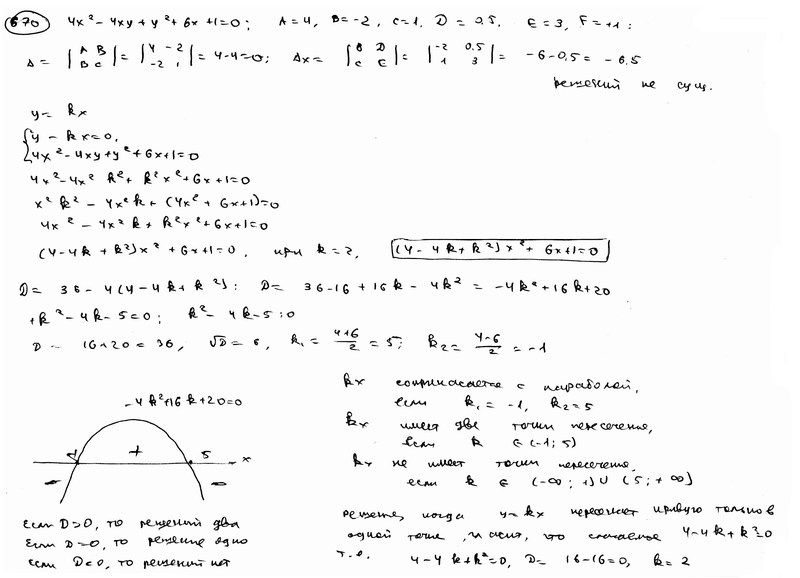 670 4x² - 4xy + y² + 6x + 1 = 0; A = 4, B = -2, C = 1, D = 0,5, E = 3, F = +1:
Δ = |A B; B C| = |4 -2; -2 1| = 4-4=0; Δx = |B D; C E| = |-2 0,5; 1 3| = -6-0,5 = -6,5
решений не сущ.
y = kx
{y - kx = 0,
4x² - 4xy + y² + 6x + 1 = 0
4x² - 4x² k² + k²x² + 6x + 1 = 0
x²k² - 4x²k + (4x² + 6x + 1) = 0
4x² - 4x²k + k²x² + 6x + 1 = 0
(4 - 4k + k²)x² + 6x + 1 = 0, при k = 2, (4 - 4k + k²)x² + 6x + 1 = 0
D = 36 - 4(4 - 4k + k²): D = 36 - 16 + 16k - 4k² = -4k² + 16k + 20
+k² - 4k - 5 = 0; k² - 4k - 5 = 0
D = 16 + 20 = 36, √D = 6, k₁ = (4+6)/2 = 5; k₂ = (4-6)/2 = -1
-4k² + 16k + 20 = 0
+ 5 x
- -
kx соприкасается с параболой,
если k₁ = -1, k₂ = 5
kx имеет две точки пересечения,
если k ∈ (-1; 5)
kx не имеет точки пересечения,
если k ∈ (-∞; -1) ∪ (5; +∞)
Если D>0, то решений два
Если D=0, то решение одно
если D<0, то решений нет
решете, когда y = kx пересекает кривую только в
одной точке, что 4 - 4k + k² = 0
т.е. 4 - 4k + k² = 0, D = 16 - 16 = 0, k = 2